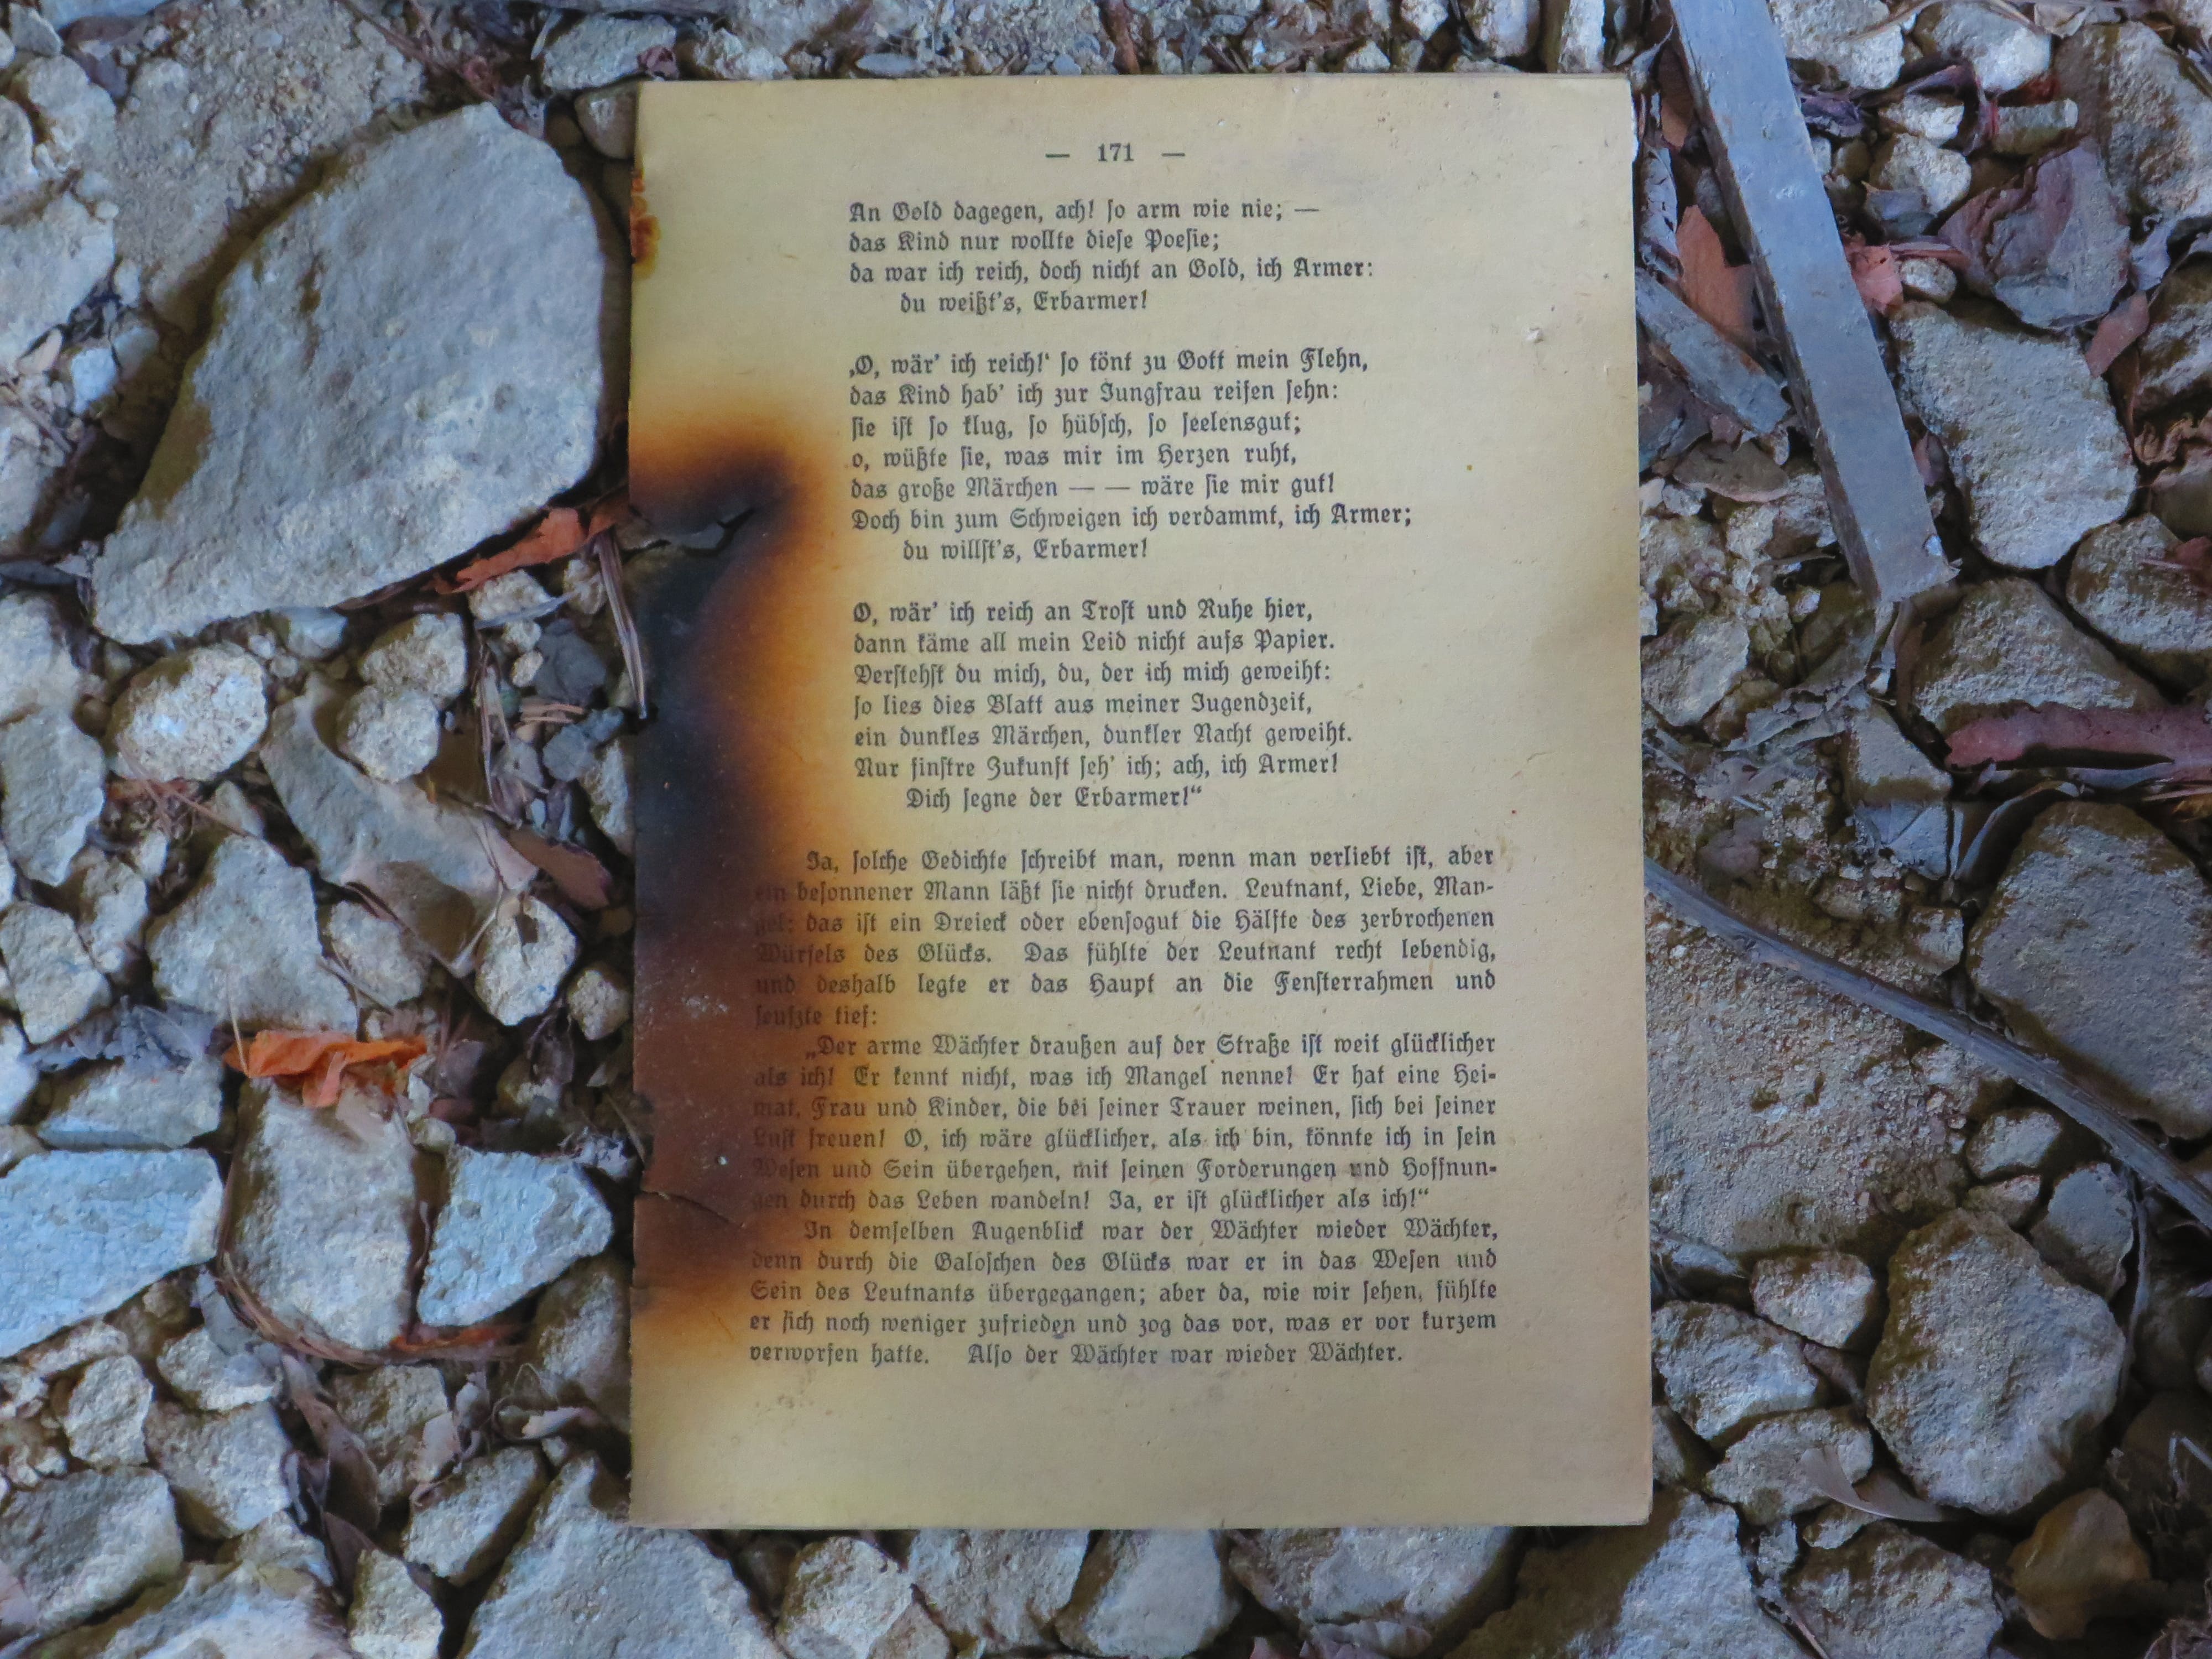 — 171 —
An Gold dagegen, ach! so arm wie nie; —
das Kind nur wollte diese Poesie;
da war ich reich, doch nicht an Gold, ich Armer:
du weißt's, Erbarmer!
‚O, wär' ich reich!‘ so tönt zu Gott mein Flehn,
das Kind hab' ich zur Jungfrau reifen sehn:
sie ist so klug, so hübsch, so seelensgut;
o, wüßte sie, was mir im Herzen ruht,
das große Märchen — — wäre sie mir gut!
Doch bin zum Schweigen ich verdammt, ich Armer;
du willst's, Erbarmer!
O, wär' ich reich an Trost und Ruhe hier,
dann käme all mein Leid nicht aufs Papier.
Verstehst du mich, du, der ich mich geweiht:
so lies dies Blatt aus meiner Jugendzeit,
ein dunkles Märchen, dunkler Nacht geweiht.
Nur finstre Zukunft seh' ich; ach, ich Armer!
Dich segne der Erbarmer!“
Ja, solche Gedichte schreibt man, wenn man verliebt ist, aber
ein besonnener Mann läßt sie nicht drucken. Leutnant, Liebe, Man-
gel: das ist ein Dreieck oder ebensogut die Hälfte des zerbrochenen
Würfels des Glücks. Das fühlte der Leutnant recht lebendig,
und deshalb legte er das Haupt an die Fensterrahmen und
seufzte tief:
„Der arme Wächter draußen auf der Straße ist weit glücklicher
als ich! Er kennt nicht, was ich Mangel nenne! Er hat eine Hei-
mat, Frau und Kinder, die bei seiner Trauer weinen, sich bei seiner
Lust freuen! O, ich wäre glücklicher, als ich bin, könnte ich in sein
Wesen und Sein übergehen, mit seinen Forderungen und Hoffnun-
gen durch das Leben wandeln! Ja, er ist glücklicher als ich!“
In demselben Augenblick war der Wächter wieder Wächter,
denn durch die Galoschen des Glücks war er in das Wesen und
Sein des Leutnants übergegangen; aber da, wie wir sehen, fühlte
er sich noch weniger zufrieden und zog das vor, was er vor kurzem
verworfen hatte. Also der Wächter war wieder Wächter.